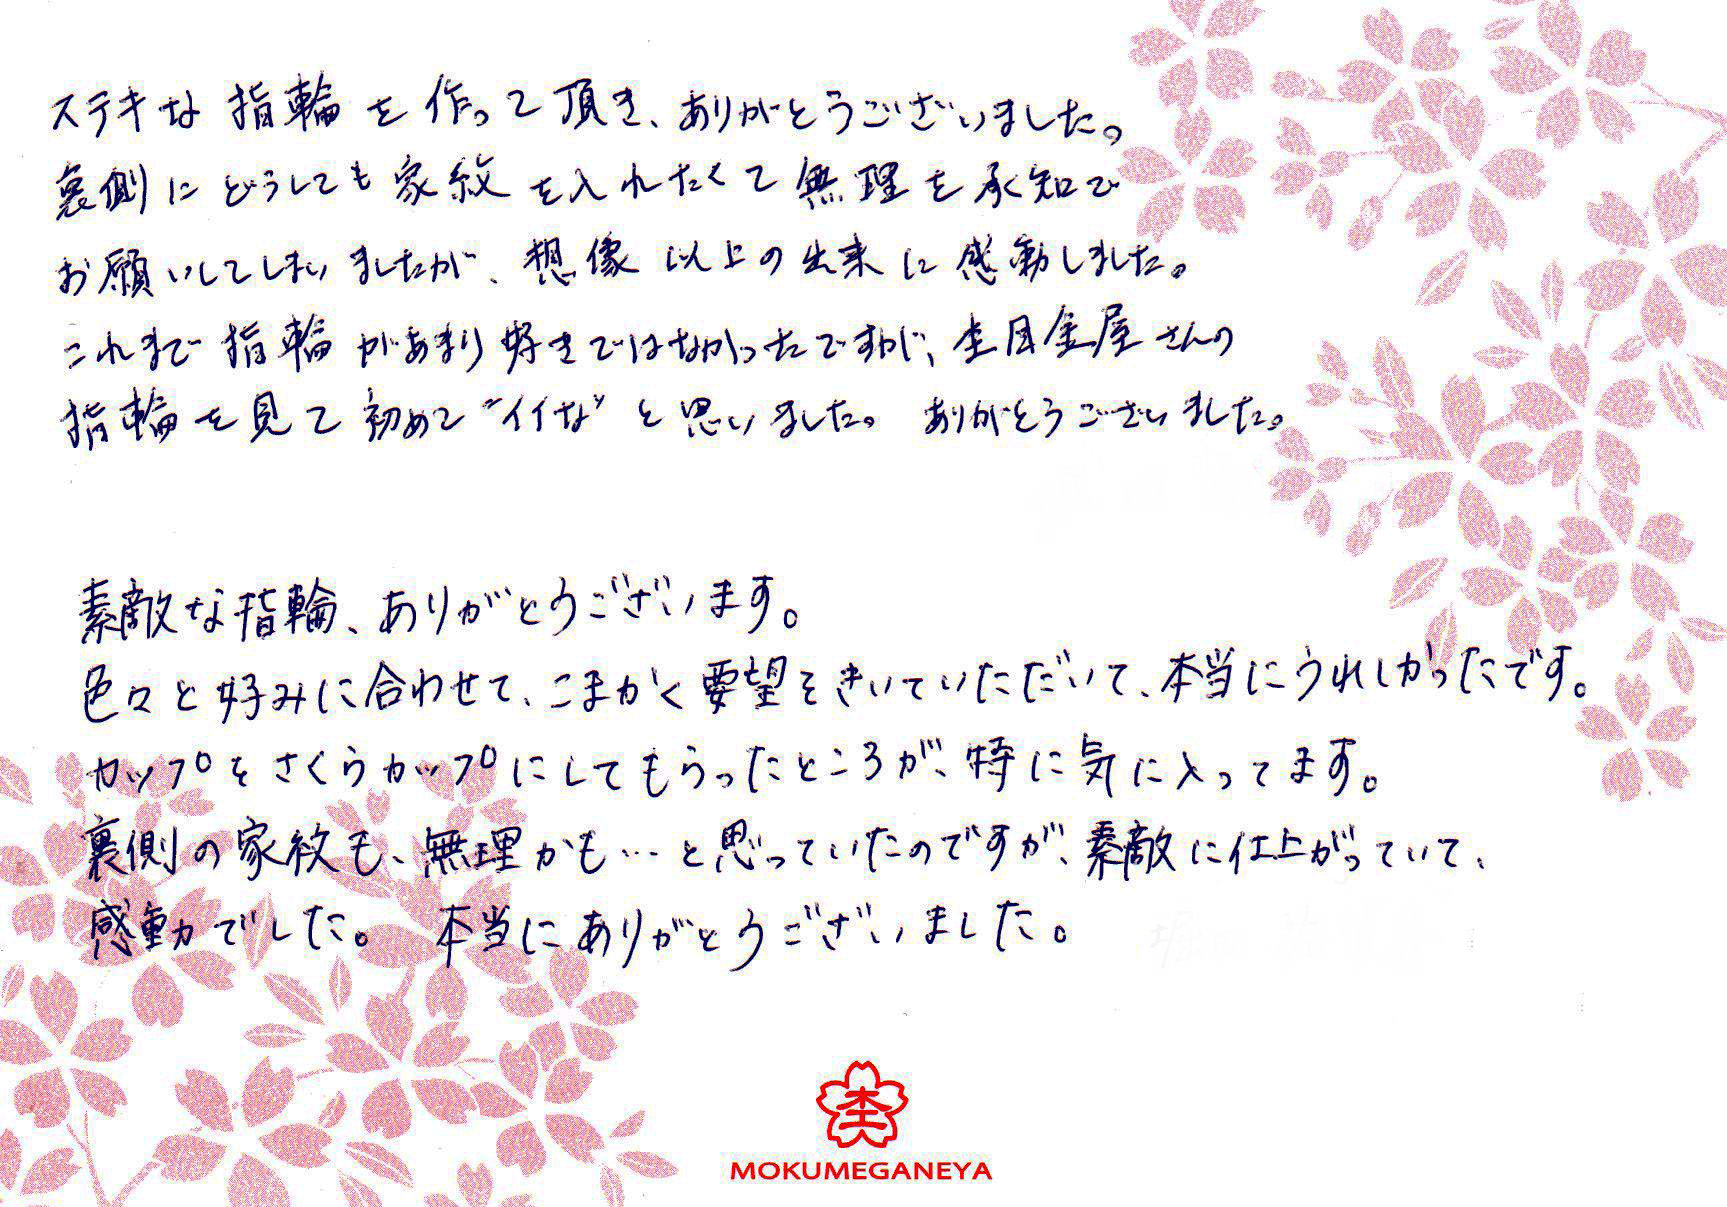 ステキな指輪を作って頂き、ありがとうございました。
裏側にどうしても家紋を入れたくて無理を承知で
お願いしてしまいましたが、想像以上の出来に感動しました。
これまで指輪があまり好きではなかったですが、杢目金屋さんの
指輪を見て初めて“イイな”と思いました。 ありがとうございました。
素敵な指輪、ありがとうございます。
色々と好みに合わせて、こまかく要望をきいていただいて、本当にうれしかったです。
カップをさくらカップにしてもらったところが、特に気に入ってます。
裏側の家紋も、無理かも…と思っていたのですが、素敵に仕上がっていて、
感動でした。 本当にありがとうございました。
杢
MOKUMEGANEYA